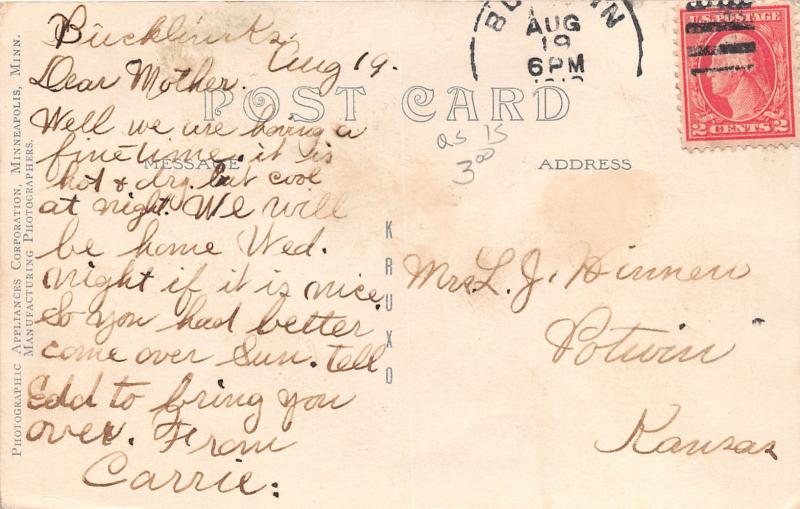 Bucklin Ks.
Aug 19.
Dear Mother.
Well we are having a
fine time. it is
hot & dry. but cool
at night. We will
be home Wed.
night if it is nice.
So you had better
come over Sun. tell
Edd to bring you
over. From
Carrie.
POST CARD
MESSAGE
ADDRESS
as is
3.00
KRUXO
PHOTOGRAPHIC APPLIANCES CORPORATION, MINNEAPOLIS, MINN.
MANUFACTURING PHOTOGRAPHERS.
AUG
19
6PM
U.S. POSTAGE
2 CENTS 2
Mrs L. J. Hinnen
Potwin
Kansas